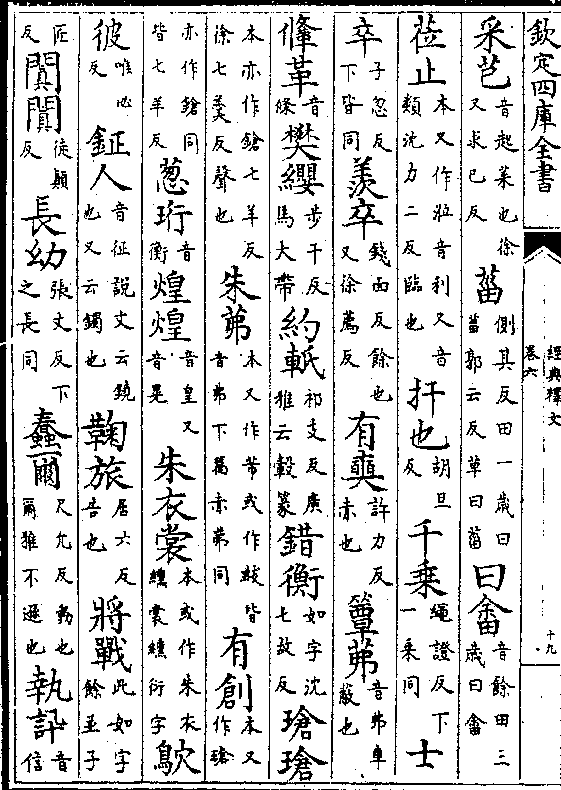 欽定四庫全書
經典釋文
卷六
十九
采芑音起菜也徐又求已反 菑側其反田一歲曰菑郭云反草曰菑 曰畬音餘田三歲曰畬
莅止本又作涖音利又音類沈力二反臨也 扞也胡旦反 千乘繩證反下一乘同 士
卒子忽反下皆同 羨卒錢面反餘也又徐薦反 有奭許力反赤也 簟茀音弗車蔽也
鞗革音條 樊纓步干反馬大帶 約軝祁支反廣雅云轂篆 錯衡如字沈七故反 瑲瑲
本亦作鎗七羊反徐七羹反聲也 朱茀本又作芾或作紱皆音弗下篇赤茀同 有創本又作瑲
亦作鎗同皆七羊反 葱珩音衡 煌煌音皇又音晃 朱衣裳本或作朱衣纁裳纁衍字 鴥
彼唯必反 鉦人音征說文云鐃也又云鐲也 鞠旅居六反告也 將戰此如字餘並子
匠反 闐闐徒顛反 長幼張丈反下之長同 蠢爾尺允反動也爾雅不遜也 執訊音信